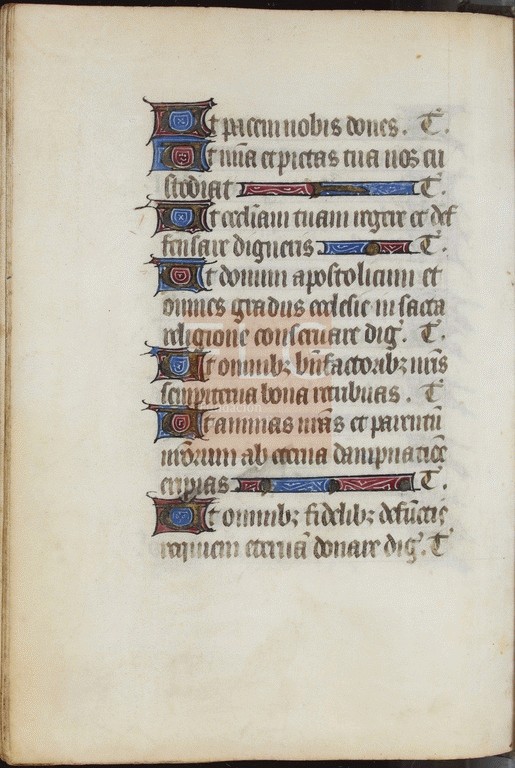 Ut pacem nobis dones. T.
Ut mia et pietas tua nos cu
stodiat T.
Ut eccliam tuam regere et def
fensare digneris T.
Ut domum apostolicum et
omnes gradus ecclesie in sacra
religione conseruare dig. T.
Ut omnibz bnfactoribz nris
sempiterna bona retribuas. T
Ut animas nras et parentu
nrorum ab eterna dampnatioe
eripias T.
Ut omnibz fidelibz defuctis
requiem eterna donare dig. T